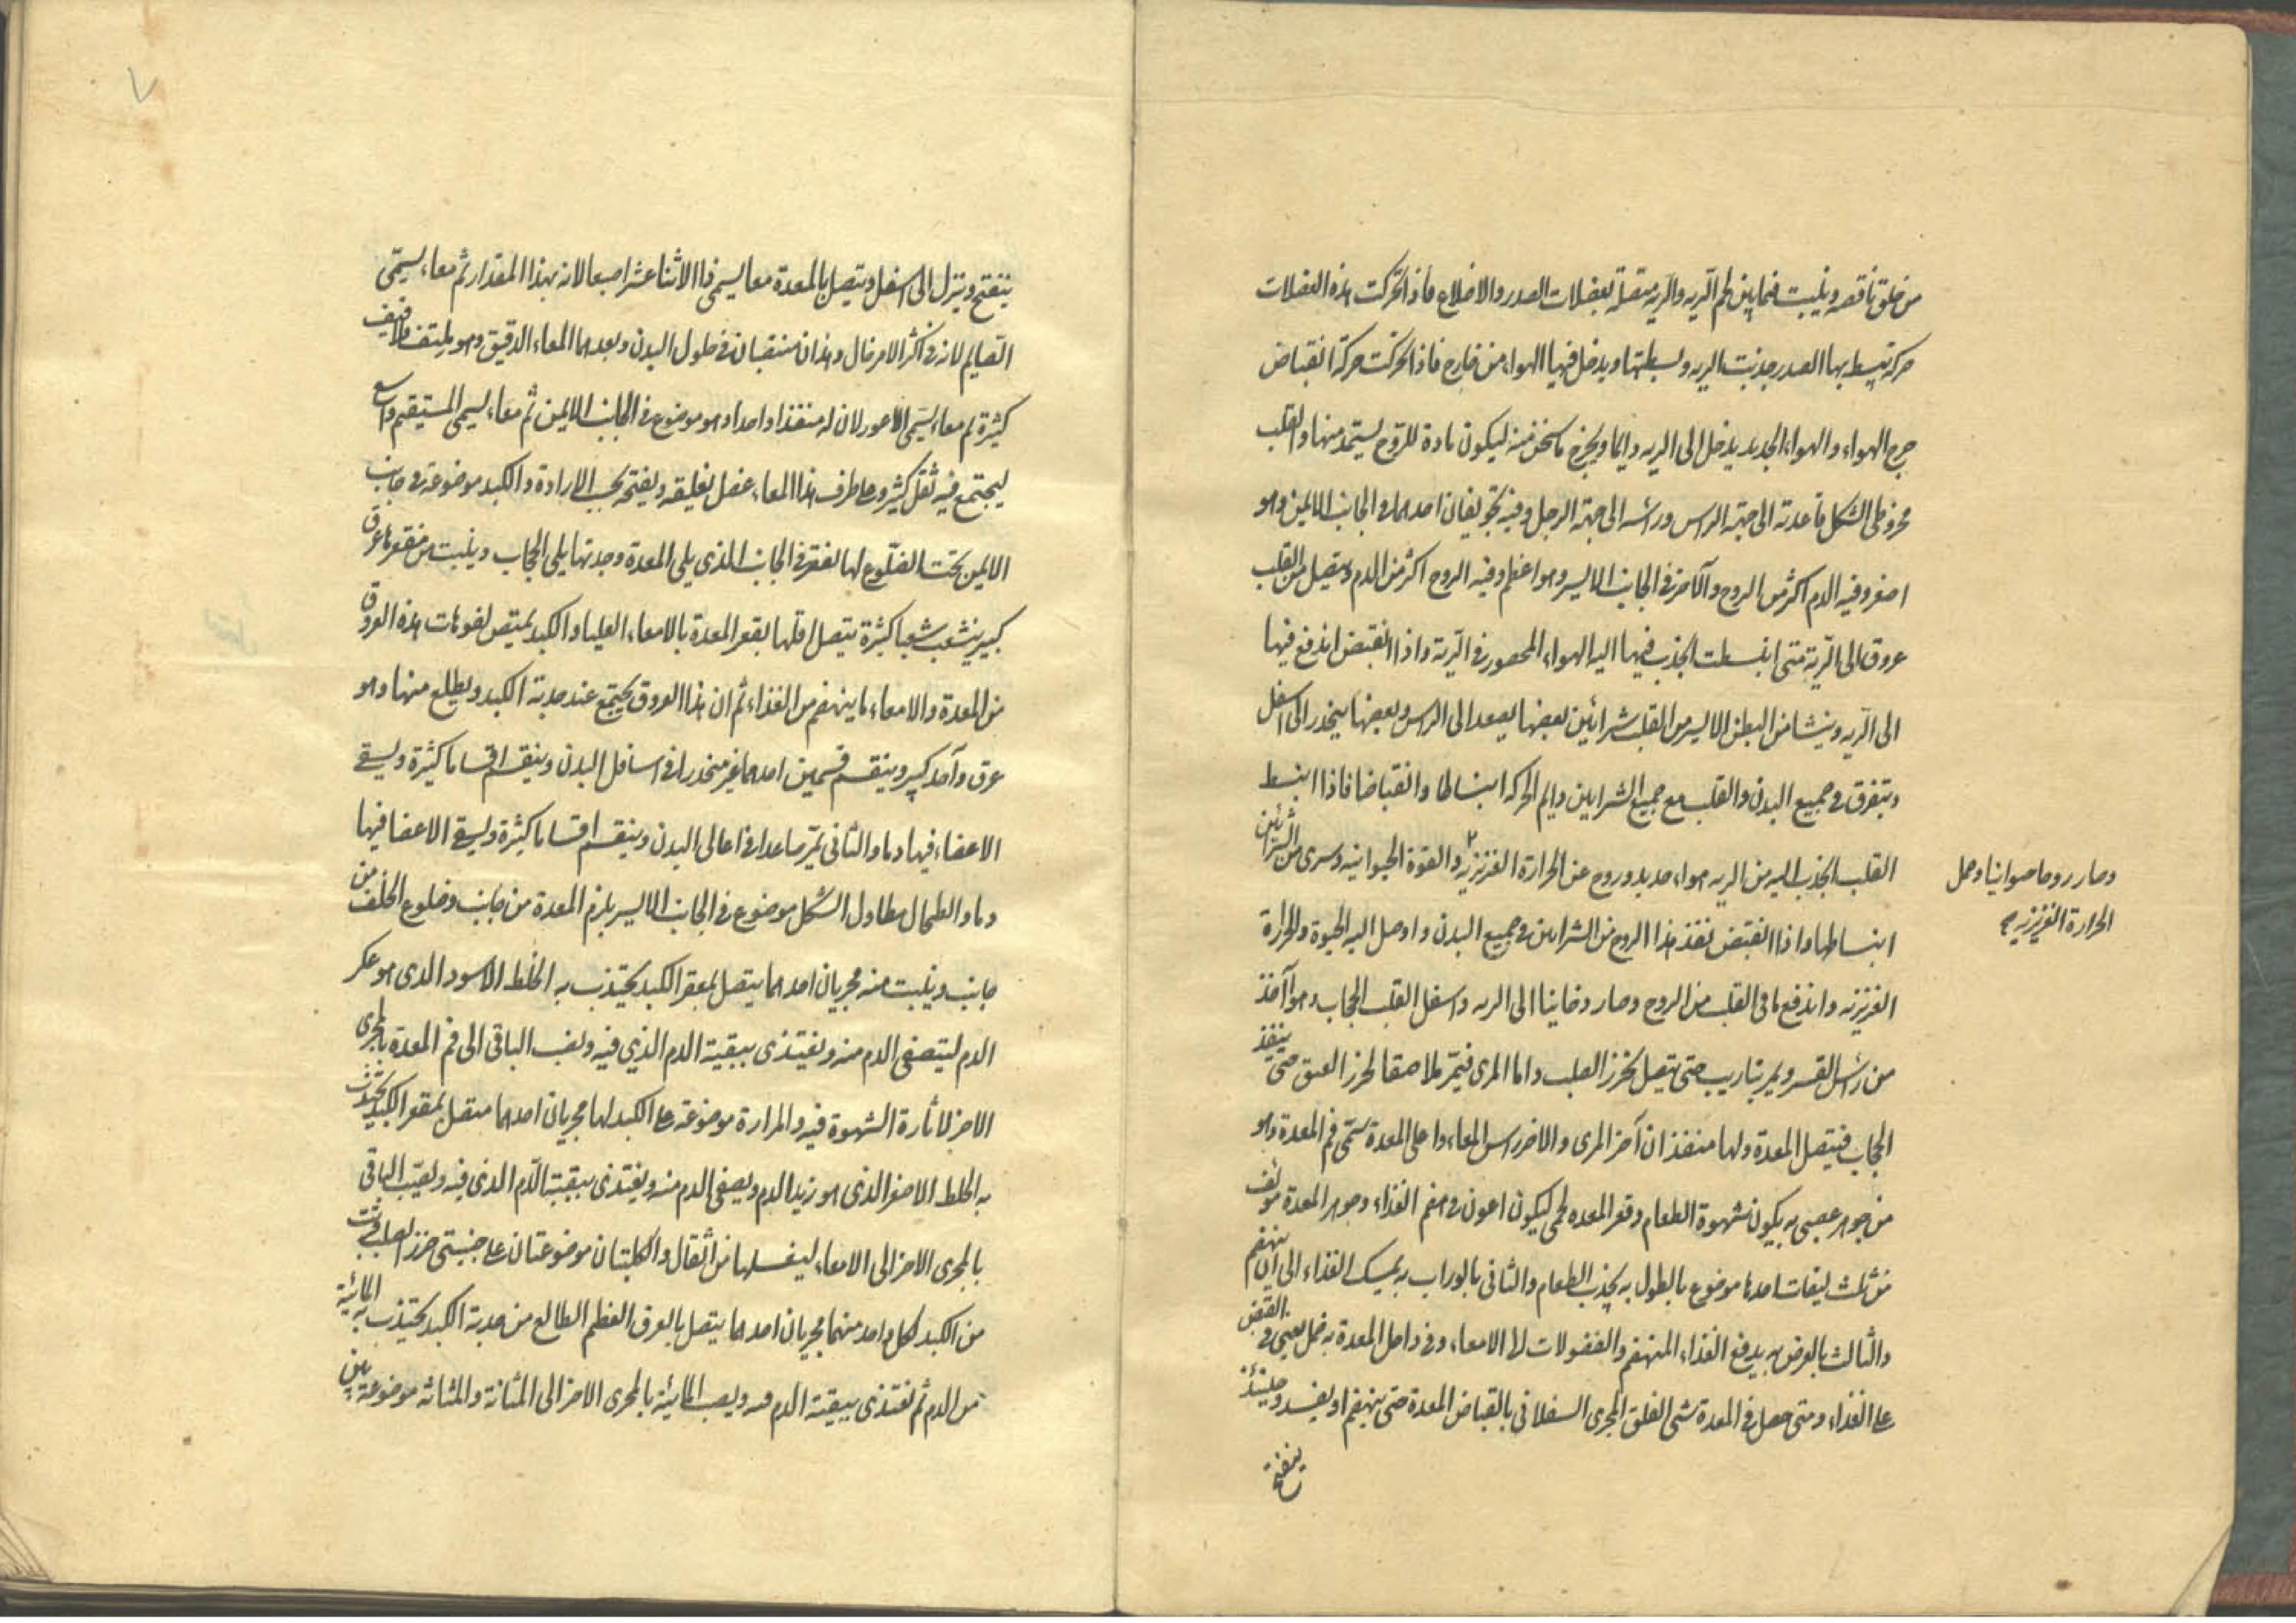 من حلق ناقصه وينبت فيما بين لحم الريه والريه متصلة بعضلات الصدر والاضلاع فاذا تحركت هذه العضلات
حركه تبسط بها الصدر جذبت الريه وبسطتها ويدخل فيها الهواء من خارج فاذا تحركت حركة انقباض
خرج الهواء والهواء الجديد يدخل الى الريه دايما ويخرج ما سخن منه ليكون مادة للروح يستمد منها والقلب
مخروطى الشكل قاعدته الى جهة الراس وراسه الى جهة الرجل وفيه تجويفان احدهما فى الجانب الايمن وهو
اصغر وفيه الدم اكثر من الروح والآخر فى الجانب الايسر وهو اعظم وفيه الروح اكثر من الدم ويتصل من القلب
عروق الى الرية متى انبسطت انجذب فيها اليه الهواء المحصور فى الرية واذا انقبض اندفع فيها
الى الريه وينشا من البطن الايسر من القلب شرائين بعضها يصعد الى الراس وبعضها ينحدر الى اسفل
ويتفرق فى جميع البدن والقلب مع جميع الشرايين دايم الحركه انبساطا وانقباضا فاذا انبسط
القلب انجذب اليه من الريه هواء جديد وروح عن الحرارة الغريزيه والقوة الحيوانيه وسرى من الشرائين
وصار روحا حيوانيا وحمل
الحرارة الغريزيه
انبساطها واذا انقبض نفذ هذا الروح من الشرايين فى جميع البدن واوصل اليه الحيوة والحرارة
الغريزيه واندفع ما فى القلب من الروح وصار دخانيا الى الريه واسفل القلب الحجاب وهو آخذ
من راس القس ويمر بتاريب حتى يتصل بخرز الصلب واما المرى فيمر ملاصقا لخرز العنق حتى ينفذ
الحجاب فيتصل المعدة ولها منفذان آخر المرى والاخر راس المعاء واعلى المعدة يسمى فم المعدة وهو
من جوهر عصبى به يكون شهوة الطعام وقعر المعده لحمى ليكون اعون فى هضم الغذاء وجوهر المعدة مولف
من ثلث ليفات احدها موضوع بالطول به يجذب الطعام والثانى بالوراب به يمسك الغذاء الى ان ينهضم
والثالث بالعرض به يدفع الغذاء المنهضم والفضولات الى الامعاء وفى داخل المعدة به خمل يعين فى القبض
على الغذاء ومتى حصل فى المعدة شى انغلق المجرى السفلانى بانقباض المعدة حتى ينهضم او يفسد وحينئذ
ينفتح
ينفتح وينزل الى اسفل ويتصل بالمعدة معا يسمى ذا الاثنا عشر اصبعا لانه بهذا المقدار ثم معاء يسمى
الصايم لانه فى اكثر الامر خال وهذان منتصبان فى طول البدن وبعدهما المعاء الدقيق وهو ملتف تلافيف
كثيرة ثم معاء يسمى الاعور لان له منفذا واحدا وهو موضوع فى الجانب الايمن ثم معاء يسمى المستقيم واسع
ليجتمع فيه ثقل كثير وعلى طرف هذا المعاء عضل يغلقه ويفتحه بحسب الارادة والكبد موضوعة فى جانب
الايمن تحت الضلوع لها تقعر فى الجانب الذى يلى المعدة وحدبتها يلى الحجاب وينبت من مقعرها عرق
كبير ينشعب شعبا كثيرة يتصل اقلها بقعر المعدة بالامعاء العليا والكبد يمتص لفوهات هذه العروق
من المعدة والامعاء ما ينهضم من الغذاء ثم ان هذا العروق يجتمع عند حدبة الكبد ويطلع منها وهو
عرق واحد كبير وينقسم قسمين احدهما يمر منحدرا فى اسافل البدن وينقسم اقساما كثيرة ويسقى
الاعضاء فيها دما والثانى يمر صاعدا فى اعالى البدن وينقسم اقساما كثيرة ويسقى الاعضا فيها
دما والطحال مطاول الشكل موضوع فى الجانب الايسر يلزم المعدة من جانب وضلوع الخلف من
جانب وينبت منه مجريان احدهما يتصل بمقعر الكبد يجتذب به الخلط الاسود الذى هو عكر
الدم ليتصفى الدم منه ويغتذى ببقية الدم الذي فيه ويصب الباقى الى فم المعدة بالمجرى
الاخر لاثارة الشهوة فيه والمرارة موضوعة على الكبد لها مجريان احدهما متصل بمقعر الكبد يجتذب
به الخلط الاصفر الذى هو زبد الدم ويصفى الدم منه ويغتذى ببقية الدم الذى فيه ويصب الباقى
بالمجرى الاخر الى الامعاء ليغسلها من اثقال والكليتان موضوعتان على جنبتى خرز الصلب
من الكبد لكل واحد منهما مجريان احدهما يتصل بالعرق العظيم الطالع من حدبة الكبد يجتذب به المائية
من الدم ثم تغتذى ببقية الدم منه ويصب المائية بالمجرى الاخر الى المثانة والمثانة موضوعة بين